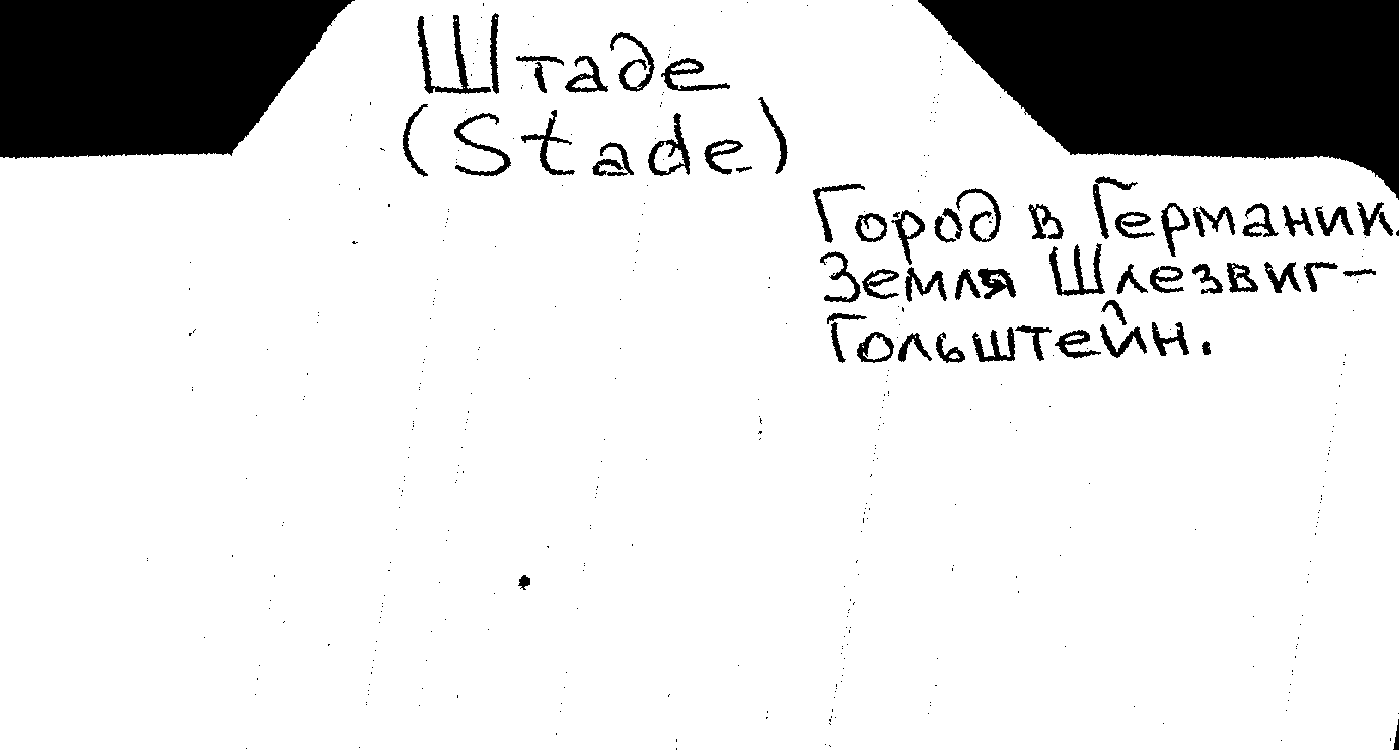 Штаде
(Stade)
Город в Германии.
Земля Шлезвиг-
Гольштейн.